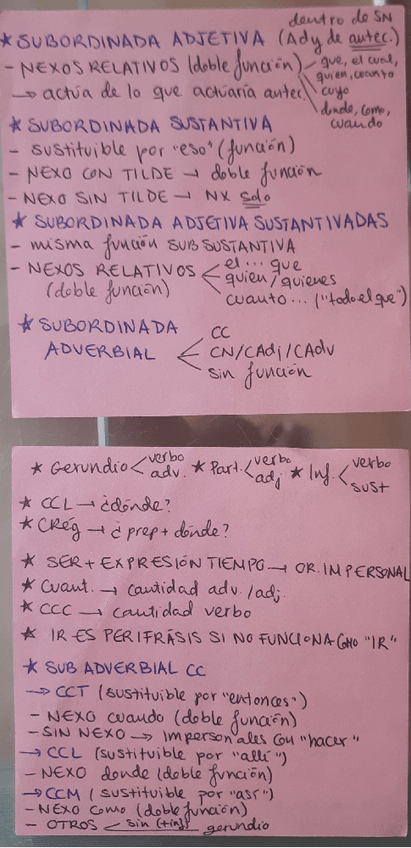 dentro de SN
★ SUBORDINADA ADJETIVA (Ady de antec.)
- NEXOS RELATIVOS (doble función) que, el cual,
quien, cuanto
→ actúa de lo que actuaría antec. cuyo
donde, como,
cuando
★ SUBORDINADA SUSTANTIVA
- sustituible por "eso" (función)
- NEXO CON TILDE → doble función
- NEXO SIN TILDE → NX solo
★ SUBORDINADA ADJETIVA SUSTANTIVADAS
- misma función SUB SUSTANTIVA
- NEXOS RELATIVOS el... que
(doble función) quien/quienes
cuanto... ("todo el que")
★ SUBORDINADA CC
ADVERBIAL CN/CAdj/CAdv
sin función
★ Gerundio verbo ★ Part. verbo ★ Inf. verbo
adv. adj sust
★ CCL → ¿dónde?
★ CRég → ¿prep + dónde?
★ SER + EXPRESIÓN TIEMPO → OR. IMPERSONAL
★ Cuant. → cantidad adv. /adj.
★ CCC → cantidad verbo
★ IR ES PERIFRÁSIS SI NO FUNCIONA COMO "IR"
★ SUB ADVERBIAL CC
→ CCT (sustituible por "entonces")
- NEXO cuando (doble función)
- SIN NEXO → Impersonales con "hacer"
→ CCL (sustituible por "allí")
- NEXO donde (doble función)
→ CCM (sustituible por "así")
- NEXO como (doble función)
- OTROS sin (+inf) gerundio